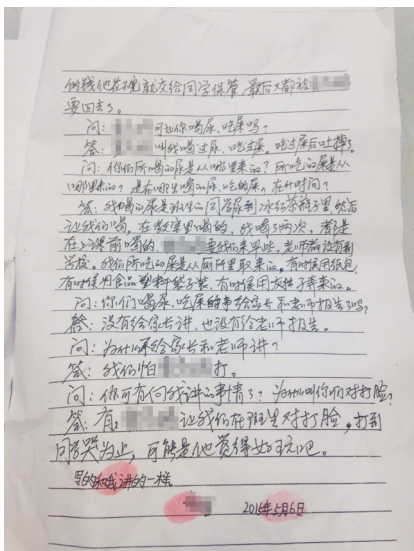 的钱他花不完就交给同学保管,最后又都被
要回去了。
问: 可让你喝尿、吃屎吗?
答: 叫我喝过尿、吃过屎,吃过屎后吐掉了
问:你们所喝的尿是从哪里来的?所吃的屎是从
哪里来的?是在哪里喝的尿、吃的屎,在什时间?
答:我喝的尿是班里的同学尿到冰红茶瓶子里,然后
让我们喝。在教室里喝的,我喝了两次,都是
在上课前喝的, 要我们来早些,老师都没有到
学校。我们所吃的屎是从厕所里取来的。有时候用纸包,
有时候用食品塑料袋子装,有时候用 弄来的。
问:你们喝尿、吃屎的事给家长和老师报告了吗?
答:没有给家长讲,也没有给老师报告。
问:为什么不给家长和老师讲?
答:我们怕 打。
问:你可有向我讲的事情了?为什么叫你们对打脸?
答:有, 让我们在班里对打脸,打到
同学哭为止,可能是他觉得好玩吧。
写的和我讲的一样
2015年5月6日